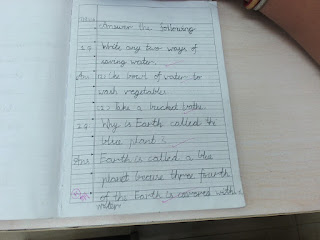 Answer the following
1 Q Write any two ways of
saving water.
Ans (1) Use bowl of water to
wash vegetables
(2) Take a bucket bath.
2 Q Why is Earth called the
blue planet
Ans Earth is called a blue
planet becuse three fourth
of the Earth is covered with
water